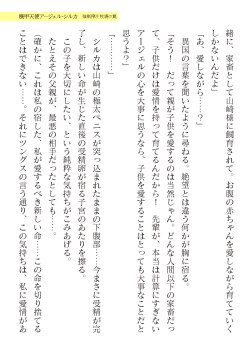 機甲天使アージェル・シルカ
緒に、家畜として山崎様に飼育されて。お腹の赤ちゃんを愛しながら育てていく
しかないんだよ」
「あ、愛しながら……？」
異国の言葉を聞いたように尋ねる。絶望とは違う何かが胸に宿る。
「そう！　だって親が子供を愛するのは当然じゃん。どんな人間以下の家畜だっ
て、子供だけは愛情を持って育てるんだから！　先輩が、本当は計算にすぎない
アージェルの心を大事に思うなら、子供を愛することはとっても大事なことだと
思うよ？」
「…………」
シルカは山崎の極太ペニスが突っ込まれたままの下腹部……今まさに受精が完
了し、新しい命が生じた直後の受精卵が宿る子宮のあたりを擦る。
この子を大切にしたい、という純粋な気持ちが胸に溢れる。
たとえその父親が、最悪の相手だったとしても……。
（確かに、これは私が愛するべき新しい命……この命を切り捨てる
ことはできない……。それにツングスの言う通り、この気持ちは、私に愛情があ